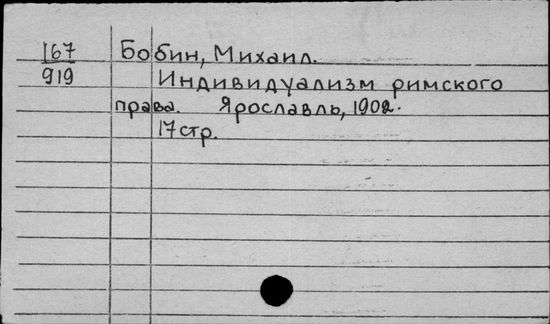 167 Бобин, Михаил.
919 Индивидуализм римского
права. Ярославль, 1902.
17 стр.